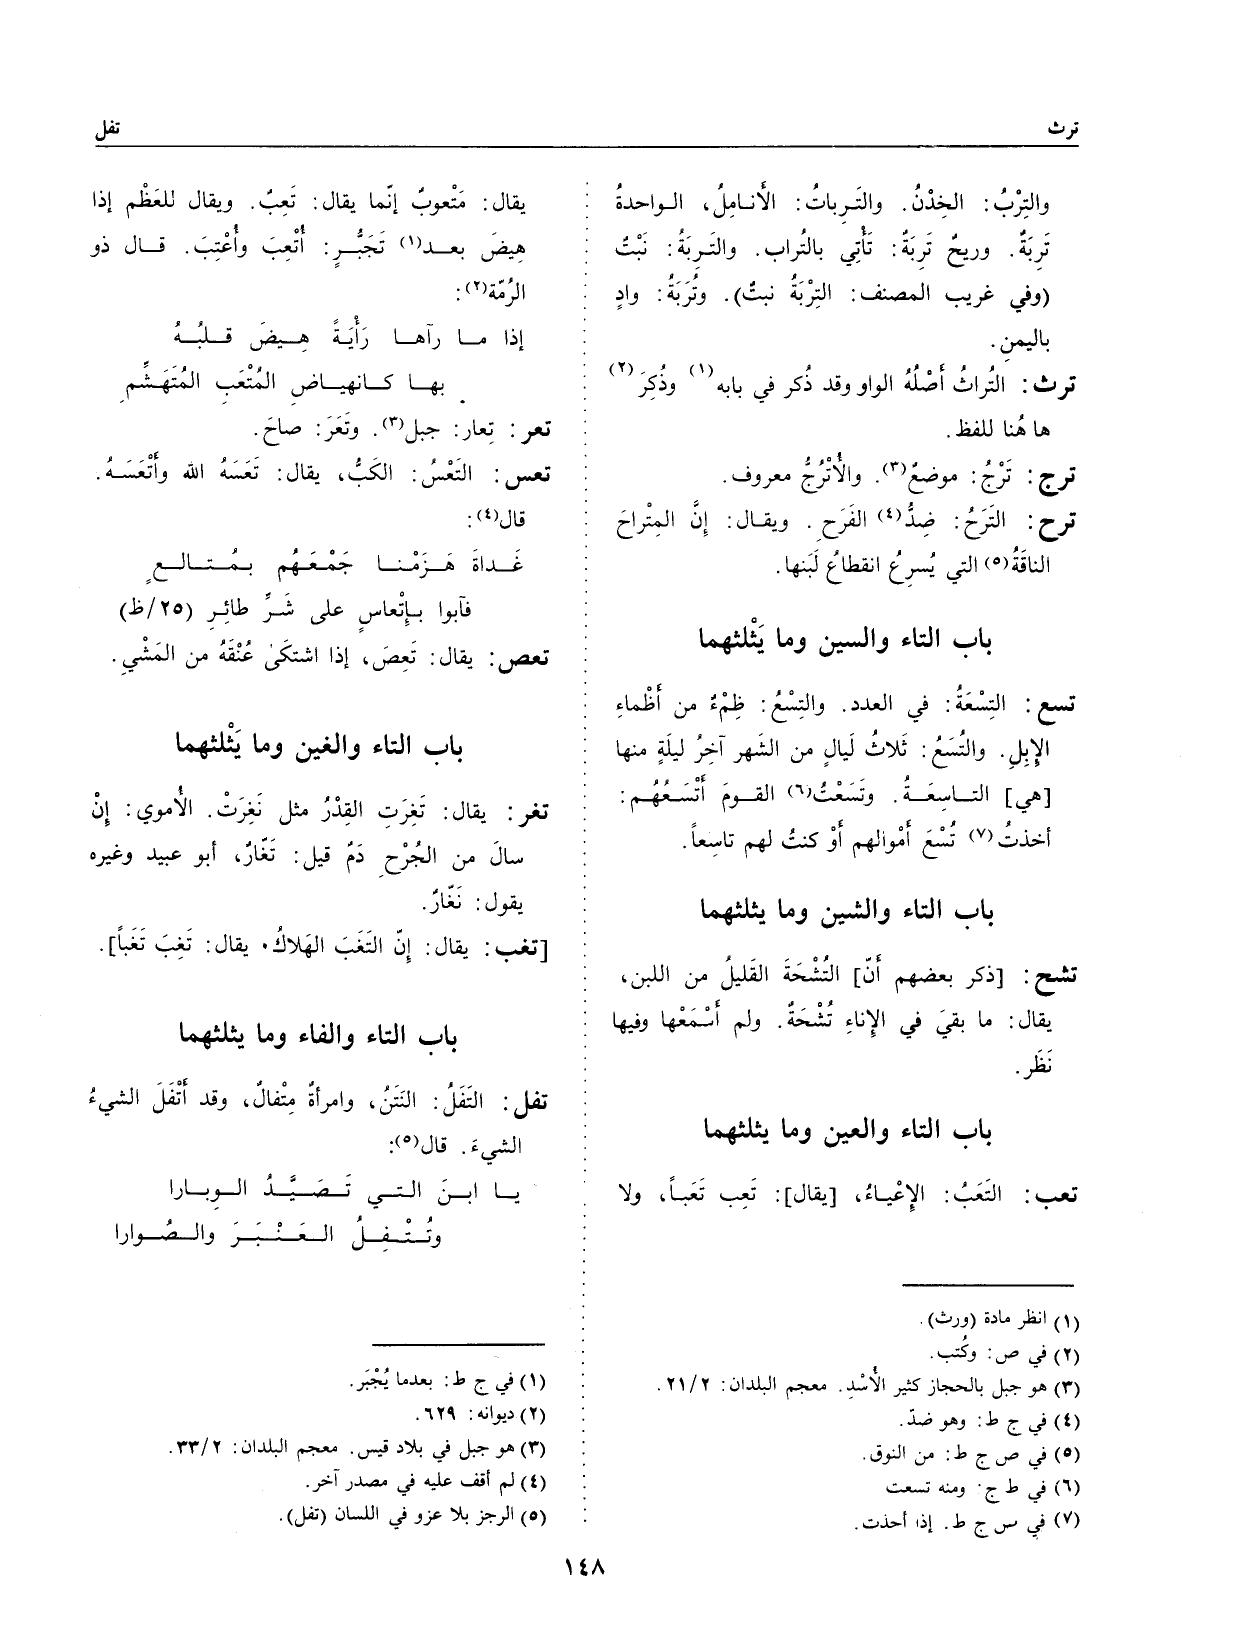 ترث
تفل
والتِرْبُ: الخِدْنُ. والتَرِباتُ: الأَنامِلُ، الواحدةُ
تَرِبَةٌ. وريحٌ تَرِبَةٌ: تَأْتِي بالتُراب. والتَرِبَةُ: نَبْتٌ
(وفي غريب المصنف: التِرْبَةُ نبتٌ). وتُرَبَةُ: وادٍ
باليمن.
ترث: التُراثُ أَصْلُهُ الواو وقد ذُكر في بابه(١) وذُكِرَ(٢)
ها هُنا للفظ.
ترج: تَرْجُ: موضعٌ(٣). والأتْرُجُّ معروف.
ترح: التَرَحُ: ضِدُّ(٤) الفَرَحِ. ويقال: إنَّ المِتْراحَ
الناقَةُ(٥) التي يُسرِعُ انقطاعُ لَبَنها.
باب التاء والسين وما يَثْلثهما
تسع: التِسْعَةُ: في العدد. والتِسْعُ: ظِمْءٌ من أَظْماءِ
الإبِلِ. والتُسَعُ: ثَلاثُ لَيالٍ من الشهر آخِرُ ليلَةٍ منها
[هي] التاسِعَةُ. وتَسَعْتُ(٦) القومَ أَتْسَعُهُم:
أخذتُ(٧) تُسْعَ أَمْوالهم أَوْ كنتُ لهم تاسِعاً.
باب التاء والشين وما يثلثهما
تشح: [ذكر بعضهم أنّ] التُشْحَةَ القَليلُ من اللبن،
يقال: ما بقيَ في الإناءِ تُشْحَةٌ. ولم أَسْمَعْها وفيها
نَظَر.
باب التاء والعين وما يثلثهما
تعب: التَعَبُ: الإعْياءُ، [يقال]: تَعِب تَعَباً، ولا
(١) انظر مادة (ورث).
(٢) في ص: وكُتب.
(٣) هو جبل بالحجاز كثير الأُسْد. معجم البلدان: ٢١/٢.
(٤) في ج ط: وهو ضدّ.
(٥) في ص ج ط: من النوق.
(٦) في ط ج. ومنه تسعت
(٧) في س ج ط. إذا أخذت.
يقال: مَتْعوبٌ إنّما يقال: تَعِبٌ. ويقال للعَظْم إذا
هِيضَ بعد(١) تَجَبُّرٍ: أُتْعِبَ وأُعْتِبَ. قال ذو
الرُمّة(٢):
إذا ما رآها رَأْيَةً هِيضَ قلبُهُ
بها كانهياضِ المُتْعَبِ المُتَهَشِّمِ
تعر: تِعار: جبل(٣). وتَعَرَ: صاحَ.
تعس: التَعْسُ: الكَبُّ، يقال: تَعَسَهُ الله وأَتْعَسَهُ.
قال(٤):
غَداةَ هَزَمْنا جَمْعَهُم بمُتالعٍ
فآبوا بإتْعاسٍ على شَرِّ طائِرِ (٢٥/ظ)
تعص: يقال: تَعِصَ، إذا اشتكىٰ عُنْقَهُ من المَشْيِ.
باب التاء والغين وما يَثْلثهما
تغر: يقال: تَغِرَتِ القِدْرُ مثل نَغِرَتْ. الأموي: إنْ
سالَ من الجُرْحِ دَمٌ قيل: تَغّارٌ، أبو عبيد وغيره
يقول: نَغّارٌ.
[تغب: يقال: إنّ التَغَبَ الهَلاكُ. يقال: تَغِبَ تَغَباً].
باب التاء والفاء وما يثلثهما
تفل: التَفَلُ: النَتَنُ، وامرأةٌ مِتْفالٌ، وقد أَتْفَلَ الشيءُ
الشيءَ. قال(٥):
يا ابنَ التي تَصَيَّدُ الوِبارا
وتُتْفِلُ العَنْبَرَ والصُوارا
(١) في ج ط: بعدما يُجْبَر.
(٢) ديوانه: ٦٢٩.
(٣) هو جبل في بلاد قيس. معجم البلدان: ٣٣/٢.
(٤) لم أقف عليه في مصدر آخر.
(٥) الرجز بلا عزو في اللسان (تفل).
١٤٨